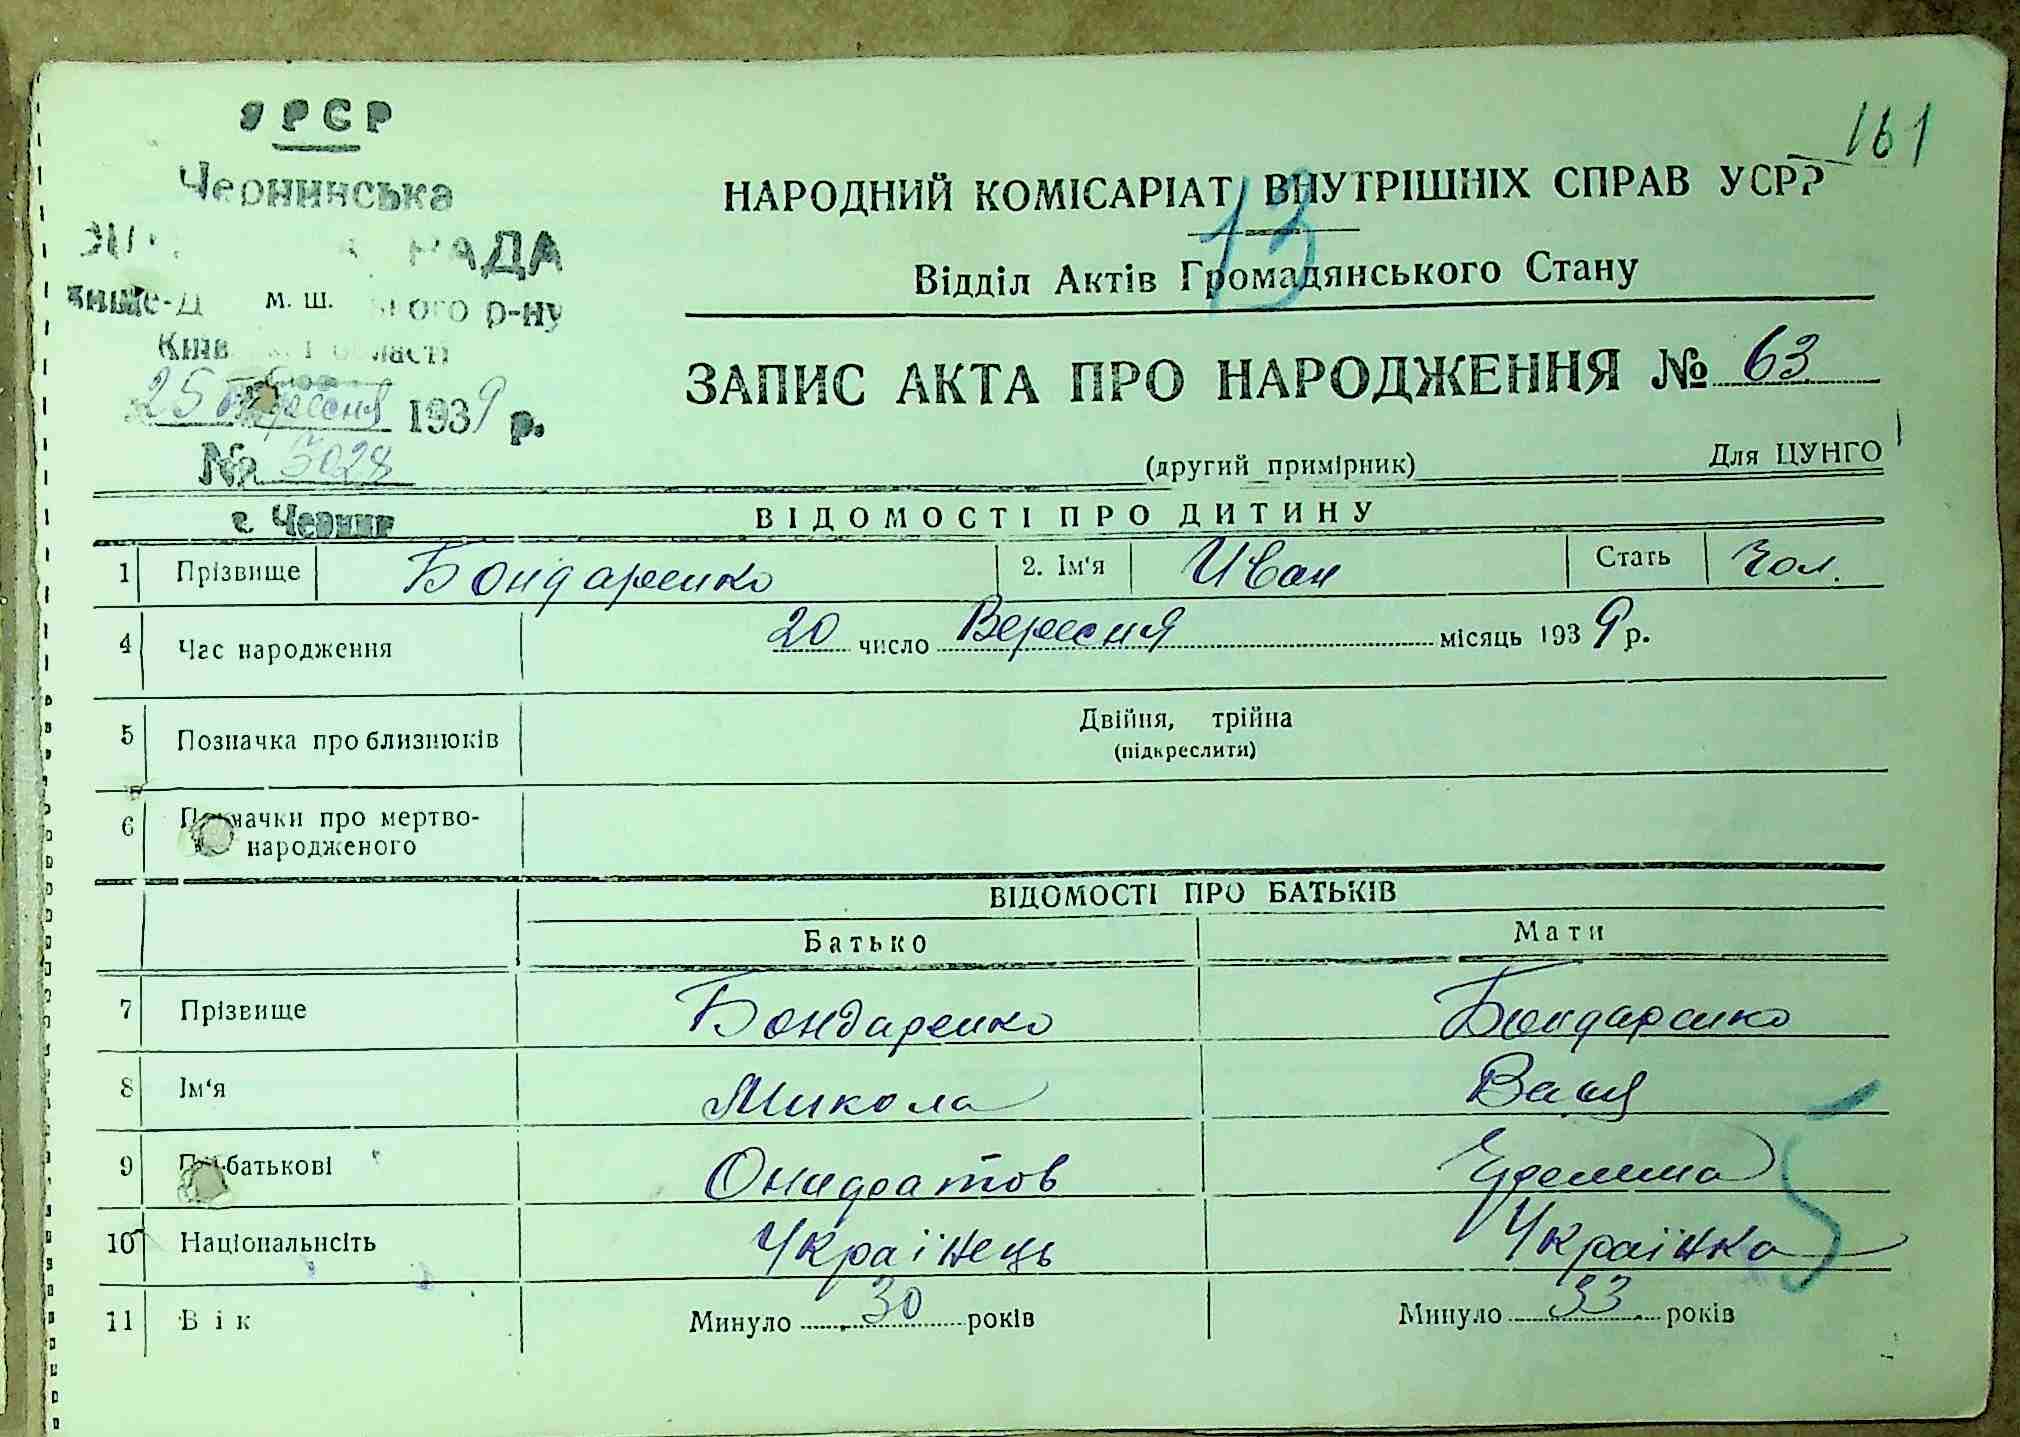 УРСР
161
Чернинська
НАРОДНИЙ КОМІСАРІАТ ВНУТРІШНІХ СПРАВ УСРР
13
РАДА
Відділ Актів Громадянського Стану
м. ш. р-ну
області
ЗАПИС АКТА ПРО НАРОДЖЕННЯ № 63
25 Вересня 1939 р.
№ 5028
(другий примірник) Для ЦУНГО
с. Чернин
ВІДОМОСТІ ПРО ДИТИНУ
1 Прізвище Бондаренко 2. Ім'я Иван Стать Чол.
4 Час народження 20 число Вересня місяць 1939 р.
5 Позначка про близнюків Двійня, трійна
(підкреслити)
6 Позначки про мертво-
народженого
ВІДОМОСТІ ПРО БАТЬКІВ
Батько Мати
7 Прізвище Бондаренко Бондаренко
8 Ім'я Микола
9 По-батькові
10 Національнсіть Українець Українка
5
11 Вік Минуло 30 років Минуло 33 років